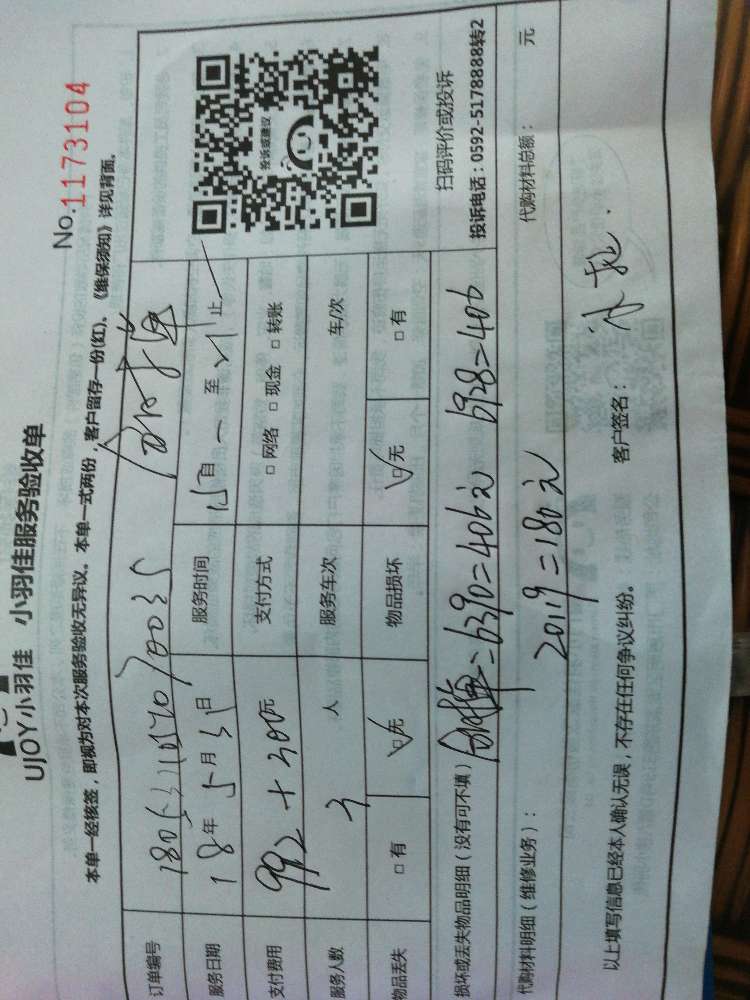 UJOY小羽佳 小羽佳服务验收单
No.1173104
本单一经核签，即视为对本次服务验收无异议。本单一式两份，客户留存一份(红)。《维保须知》详见背面。
订单编号
服务日期 18年5月31日 服务时间 自 一 至 止
支付费用 992+300元 支付方式 □网络 □现金 □转账
服务人数 3 人 服务车次 车/次
物品丢失 □有 □无 物品损坏 □无 □有
答诉或建议
扫码评价或投诉
投诉电话：0592-5178888转2
损坏或丢失物品明细（没有可不填） 6390=406元 6928=406
代购材料明细（维修业务）： 20119=180元 代购材料总额： 元
以上填写信息已经本人确认无误，不存在任何争议纠纷。 客户签名：